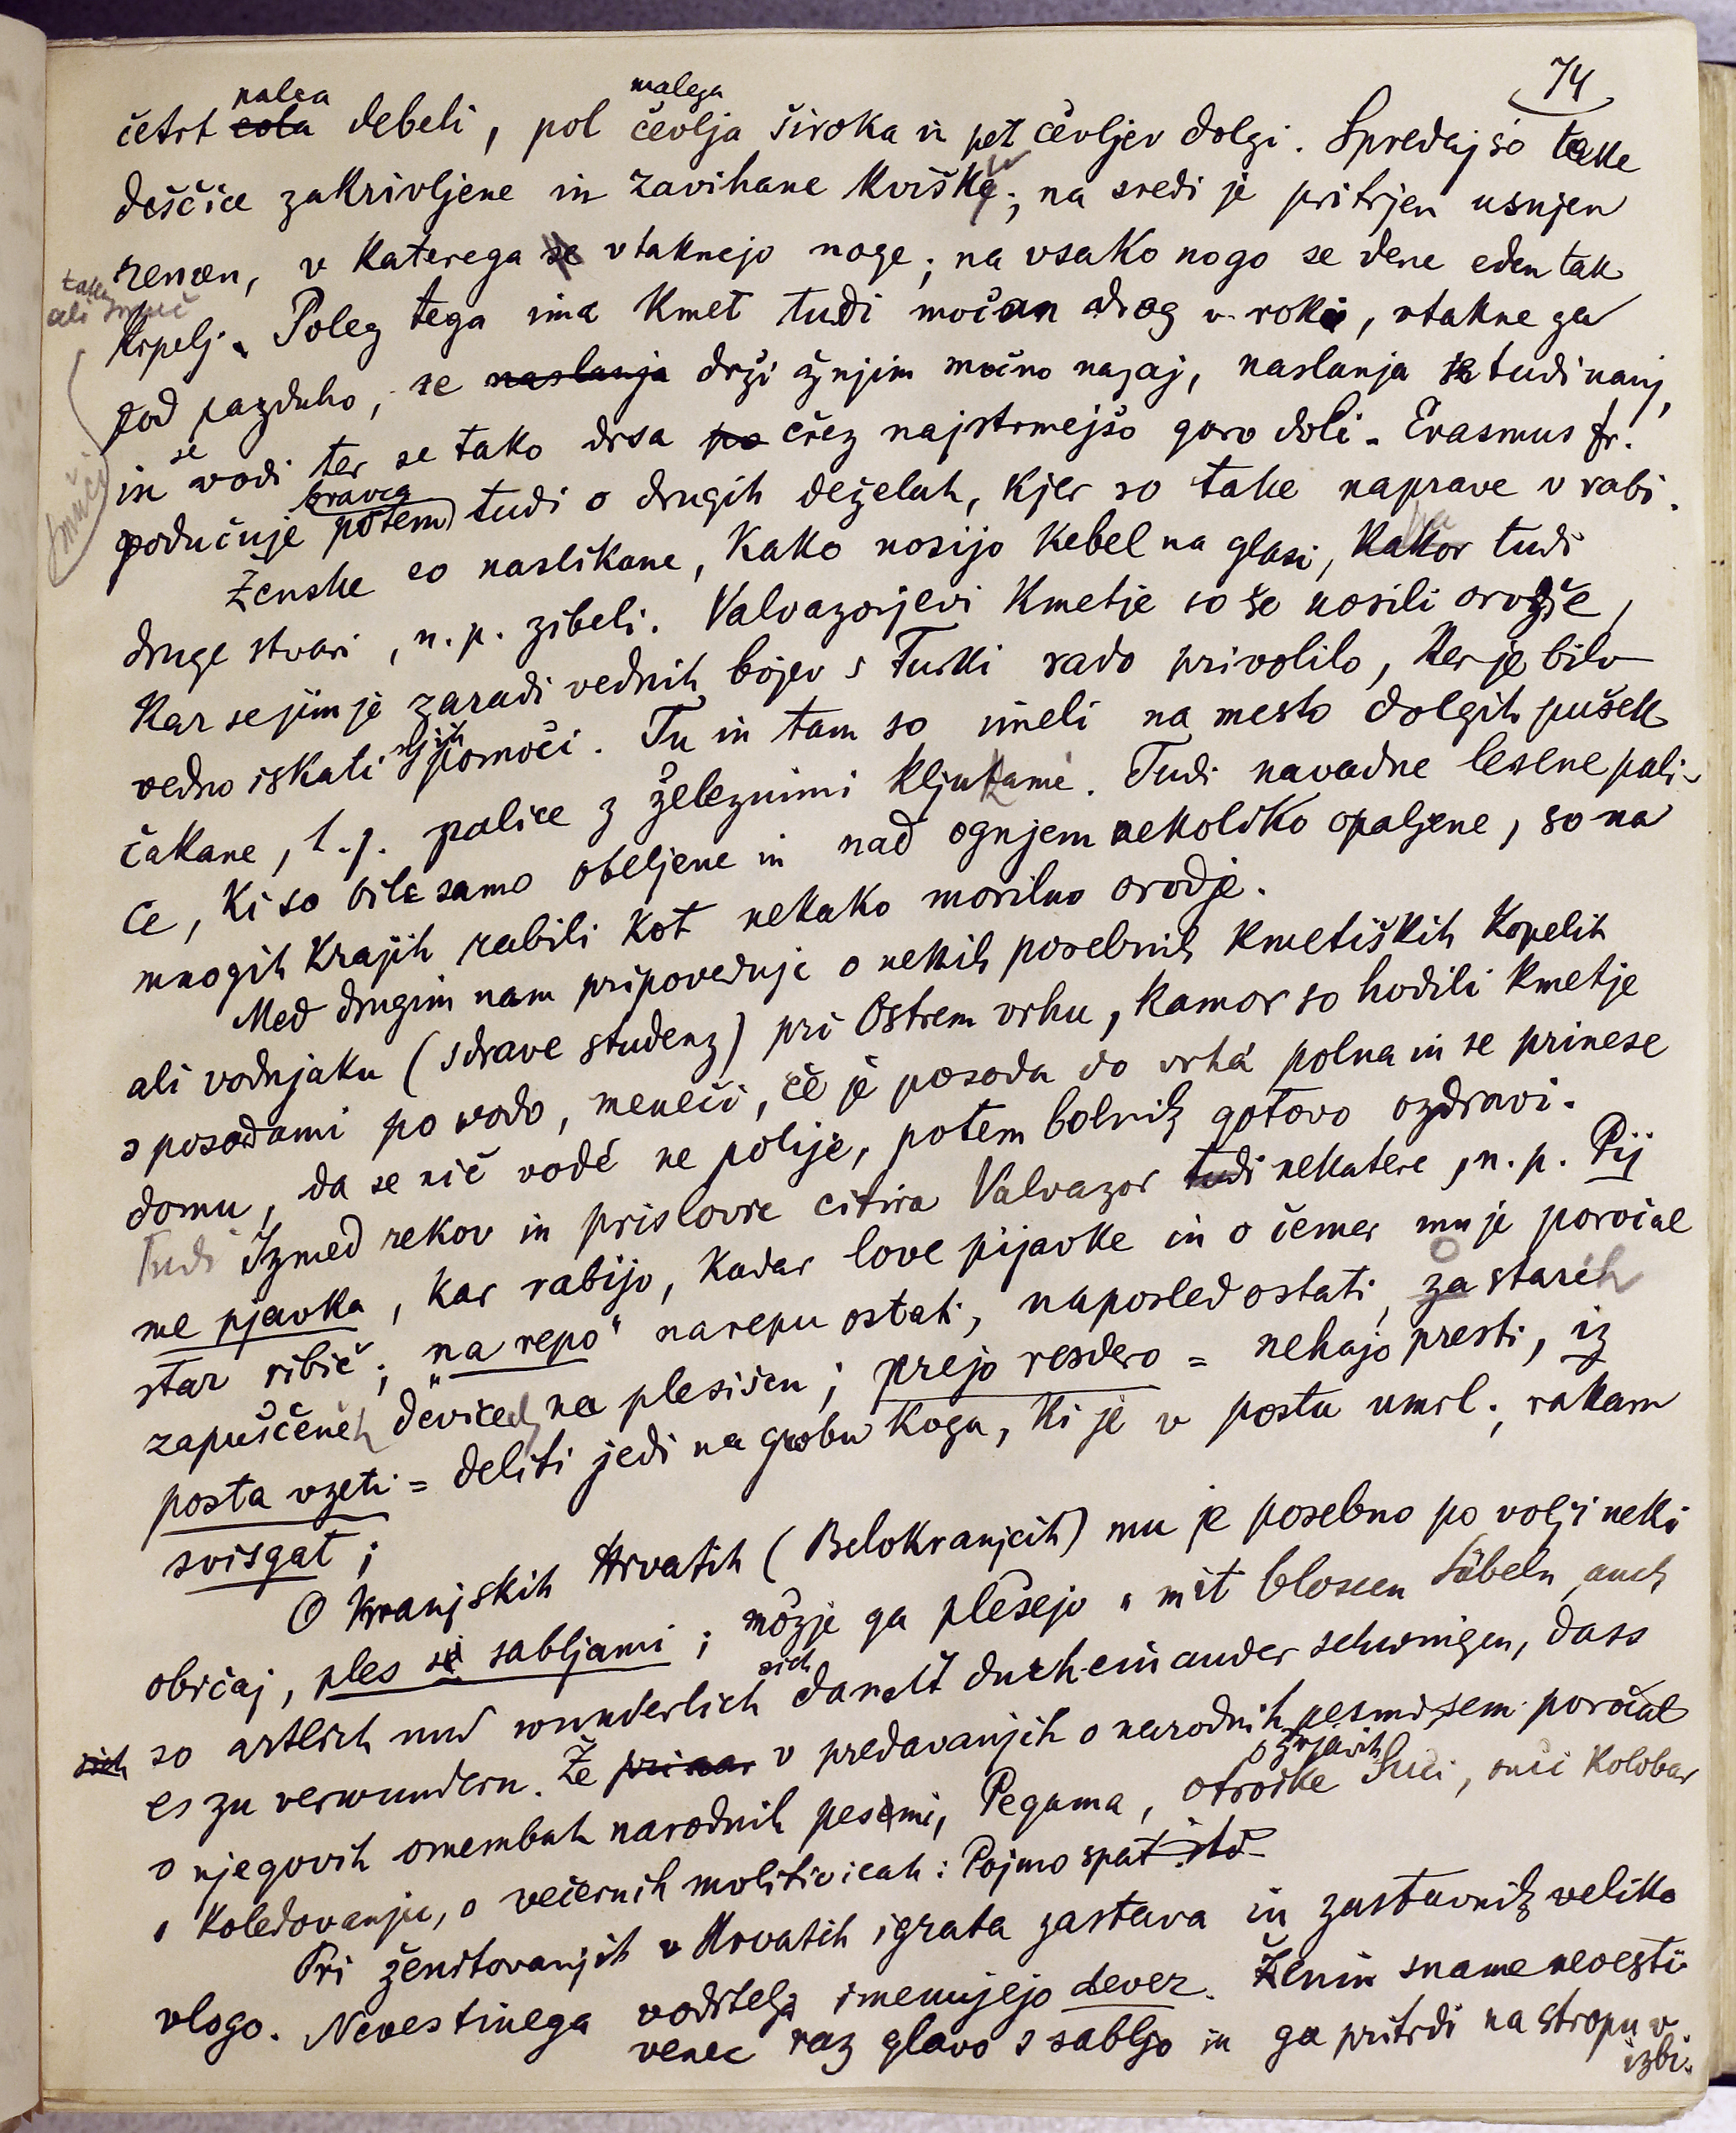 74
palca malega
četrt cola debeli, pol čevlja široka in pet čevljev dolgi. Spredaj so take
deščice zakrivljene in zavihane kvišku; na sredi je pritrjen usnjen
remen, v katerega se vtaknejo noge; na vsako nogo se dene eden tak
ali smuč
krpelj. Poleg tega ima kmet tudi močan drog v roki, vtakne ga
pod pazduho, se naslanja drži žnjim močno nazaj, naslanja se tudi nanj,
in se vodi ter se tako drsa po črez najstrmejšo goro doli. Erasmus fr.
(smuči)
podučuje potem tudi o drugih deželah, kjer so take naprave v rabi.
Ženske so naslikane, kako nosijo kebel na glavi, kakor tudi
druge stvari, n. p. zibeli. Valvazorjevi kmetje so še nosili orožje,
kar se jim je zaradi vednih bojev s Turki rado privolilo, ker je bilo
vedno iskati njih pomoči. Tu in tam so imeli na mesto dolgih pušek
čakane, t. j. palice z železnimi kljukami. Tudi navadne lesene pali-
ce, ki so bile samo obeljene in nad ognjem nekoliko opaljene, so na
mnogih krajih rabili kot nekako morilno orodje.
Med drugim nam pripoveduje o nekih posebnih kmetiških kopelih
ali vodnjaku (sdrave studenz) pri Ostrem vrhu, kamor so hodili kmetje
s posodami po vodo, meneči, če je posoda do vrha polna in se prinese
domu, da se nič vode ne polije, potem bolnik gotovo ozdravi.
Tudi Izmed rekov in prislovic citira Valvazor tudi nekatere, n. p. Pij
me pjavka, kar rabijo, kadar love pijavke in o čemer mu je poročal
star ribič; "na repo" na repu ostati, naposled ostati, za starih
zapuščenih devicah na plesišču; prejo resdero = nehajo presti, iz
posta vzeti = deliti jedi na grobu koga, ki je v postu umrl; rakam
svisgat;
O kranjskih Hrvatih (Belokranjcih) mu je posebno po volji neki
običaj, ples s sabljami; možje ga plešejo "mit blossen Säbeln, auch
sich so artlich und wunderlich sich damit durcheinander schwingen, dass
es zu verwundern. Že v predavanjih o narodnih pesmi sem poročal
o njegovih omembah narodnih pesmi, Pegama, otroške Suči, suči kolobar
o koledovanju, o večernih molitvicah: Pojmo spat itd
Pri ženitovanjih v Hrvatih igrata zastava in zastavnik veliko
vlogo. Nevestinega voditelja imenujejo dever. Ženin sname nevesti
venec raz glavo s sabljo in ga pritrdi na stropu v
izbi.